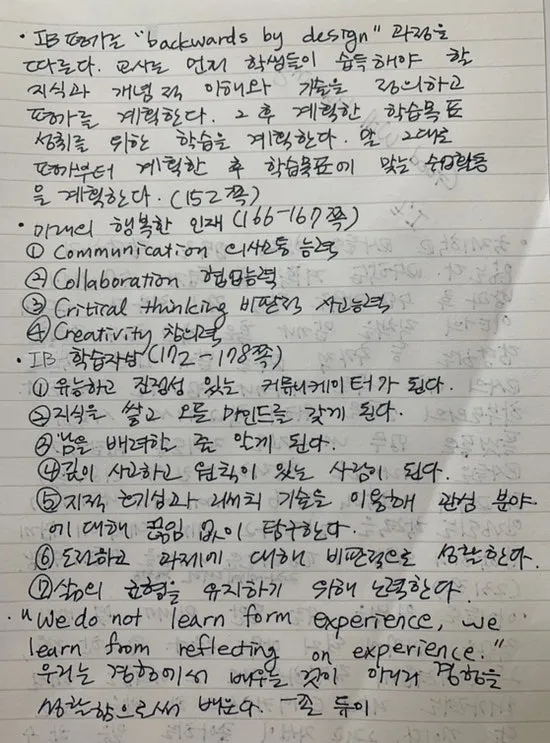 · IB 평가는 "backwards by design" 과정을
따른다. 교사는 먼저 학생들이 습득해야 할
지식과 개념적 이해와 기술을 정의하고
평가를 계획한다. 그 후 계획한 학습목표
성취를 위한 학습을 계획한다. 말 그대로
평가부터 계획한 후 학습목표에 맞는 수업활동
을 계획한다. (152쪽)
· 미래의 행복한 인재 (166-167쪽)
① Communication 의사소통 능력
② Collaboration 협업능력
③ Critical thinking 비판적 사고능력
④ Creativity 창의력
· IB 학습자상 (172-178쪽)
① 유능하고 진정성 있는 커뮤니케이터가 된다.
② 지식을 쌓고 오픈 마인드를 갖게 된다.
③ 남을 배려하는 줄 알게 된다.
④ 깊이 사고하고 원칙이 있는 사람이 된다.
⑤ 지적 호기심과 리써치 기술을 이용해 관심 분야
에 대해 끊임 없이 탐구한다.
⑥ 도전하고 과제에 대해 비판적으로 성찰한다.
⑦ 삶의 균형을 유지하기 위해 노력한다.
· "We do not learn form experience, we
learn from reflecting on experience."
우리는 경험에서 배우는 것이 아니라 경험을
성찰함으로써 배운다. - 존 듀이